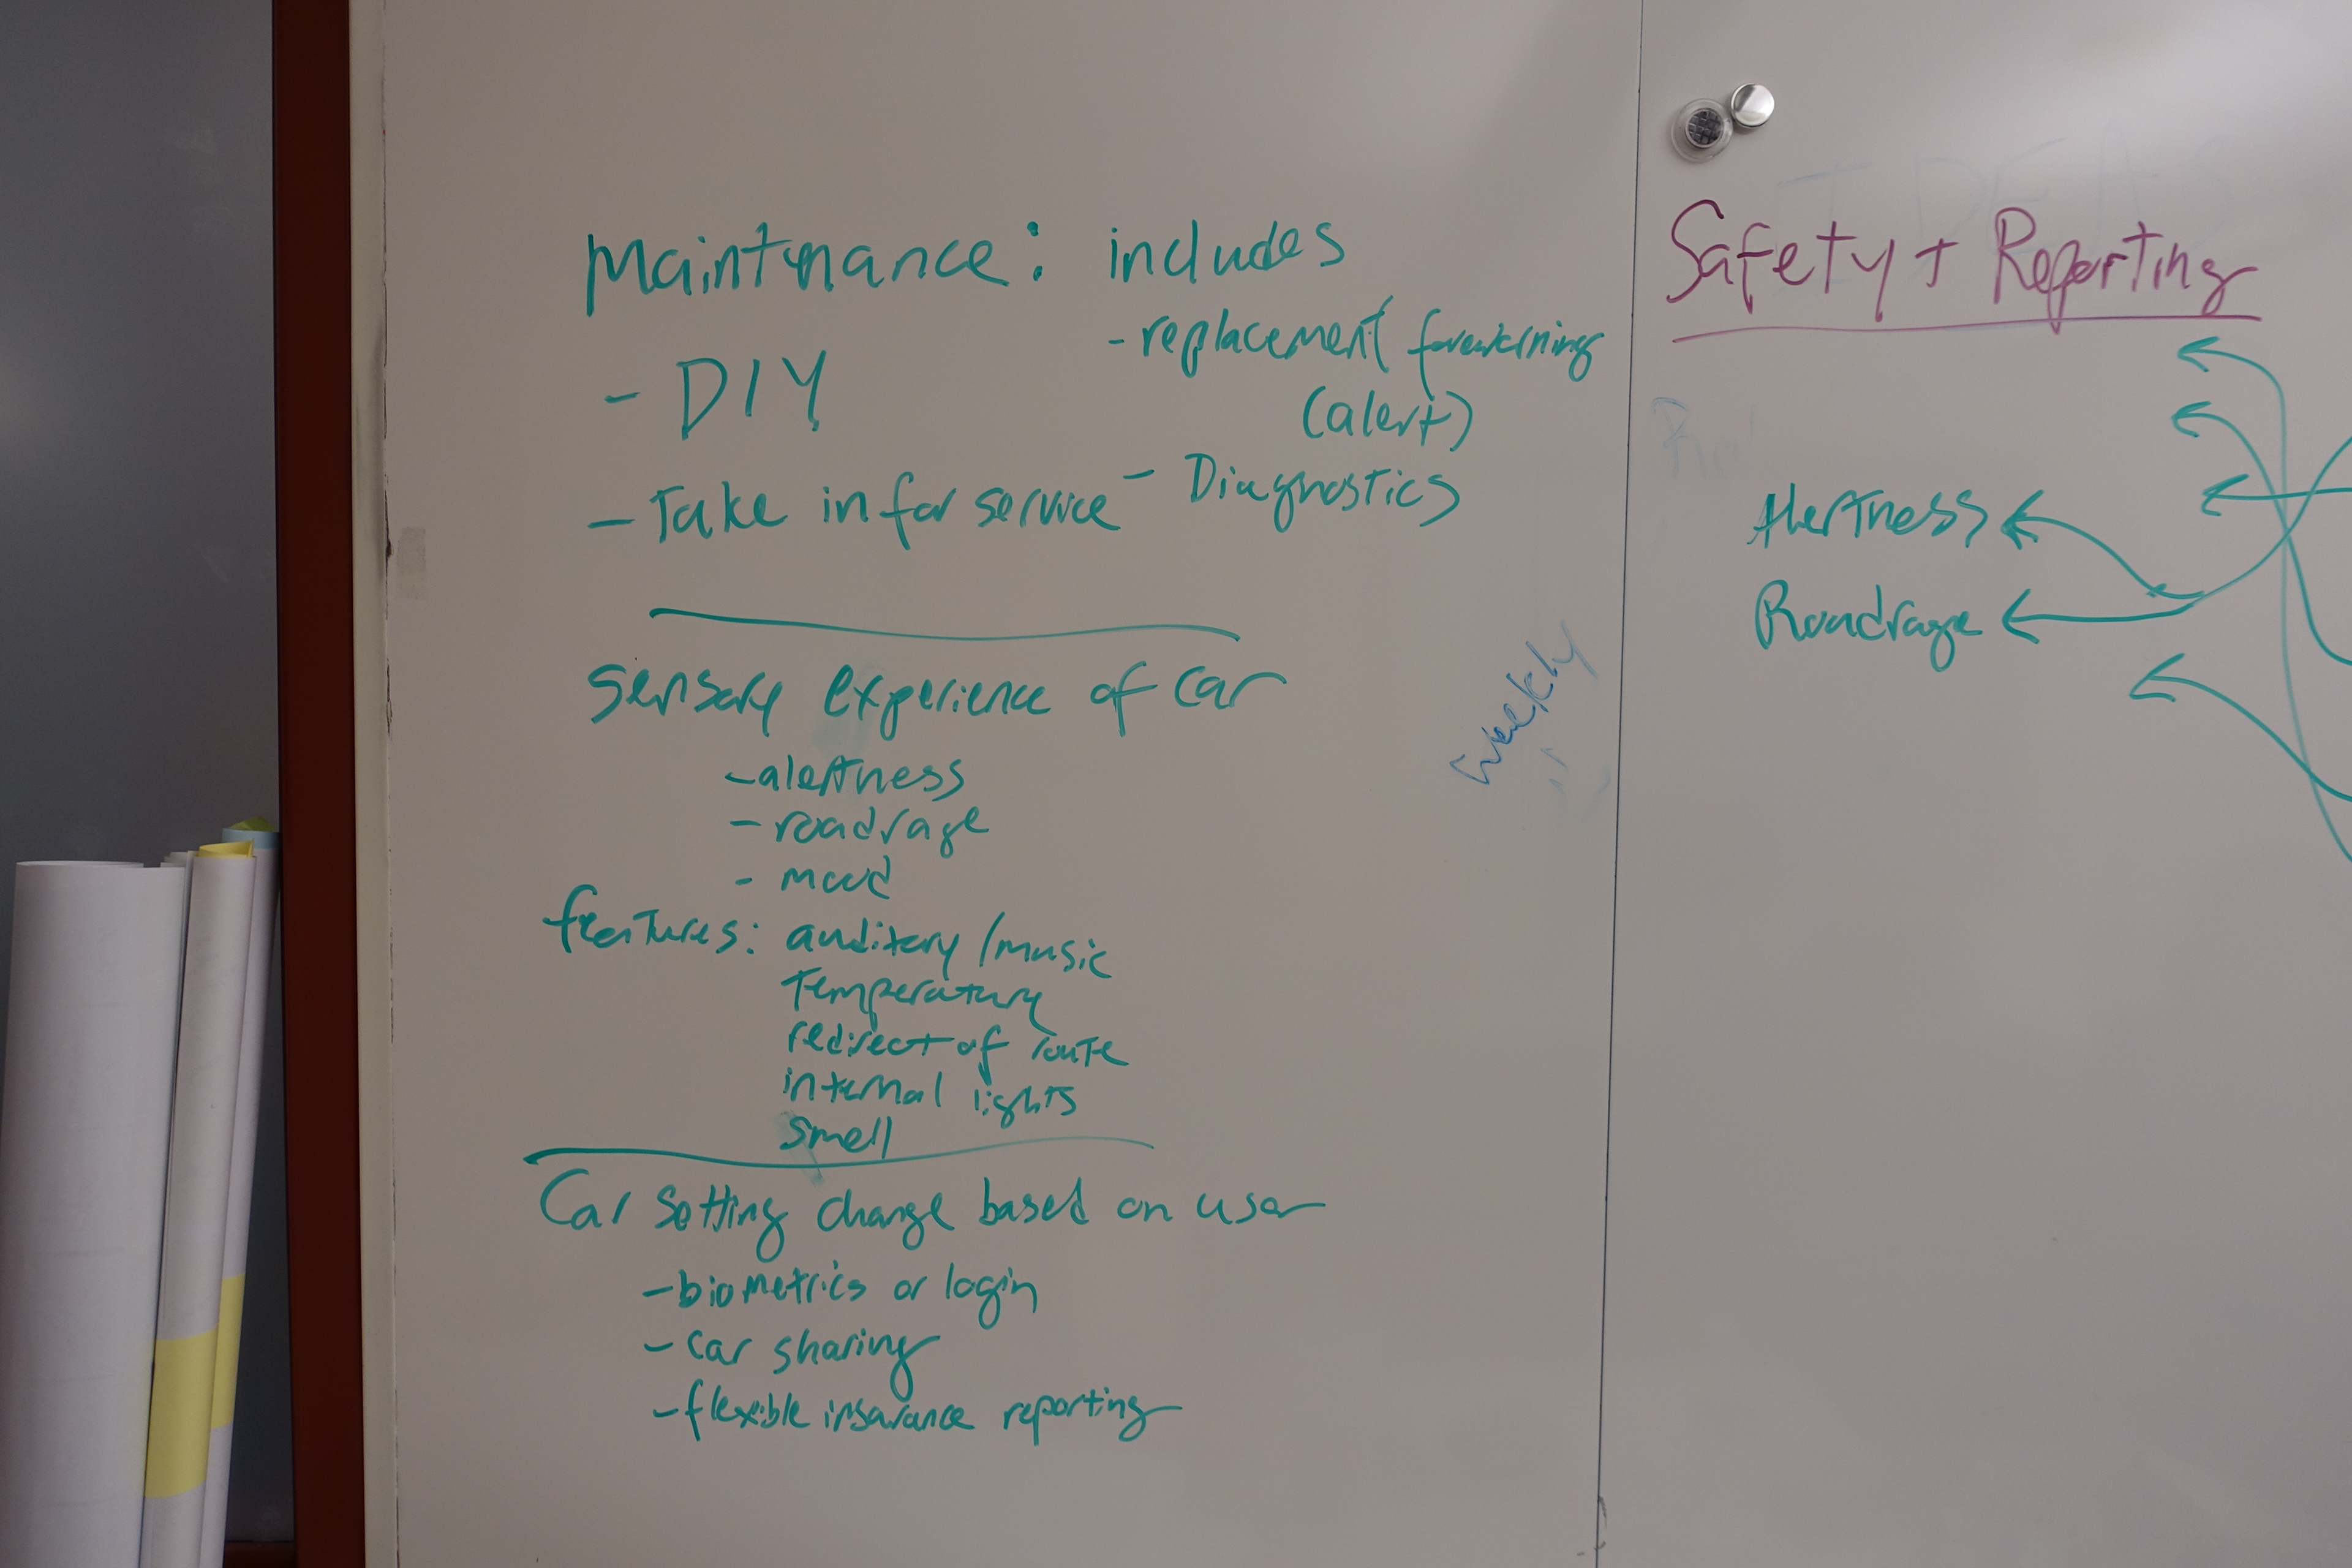 Maintnance: includes
- replacement forewarning
(alert)
- DIY
- Take in for service
- Diagnostics
Sensory experience of car
- alertness
- roadrage
- mood
features: auditory / music
Temperature
redirect of route
internal lights
Smell
Car Setting change based on user
- biometrics or login
- car sharing
- flexible insurance reporting
Weekly
IDEAS
Safety + Reporting
Alertness
Roadrage